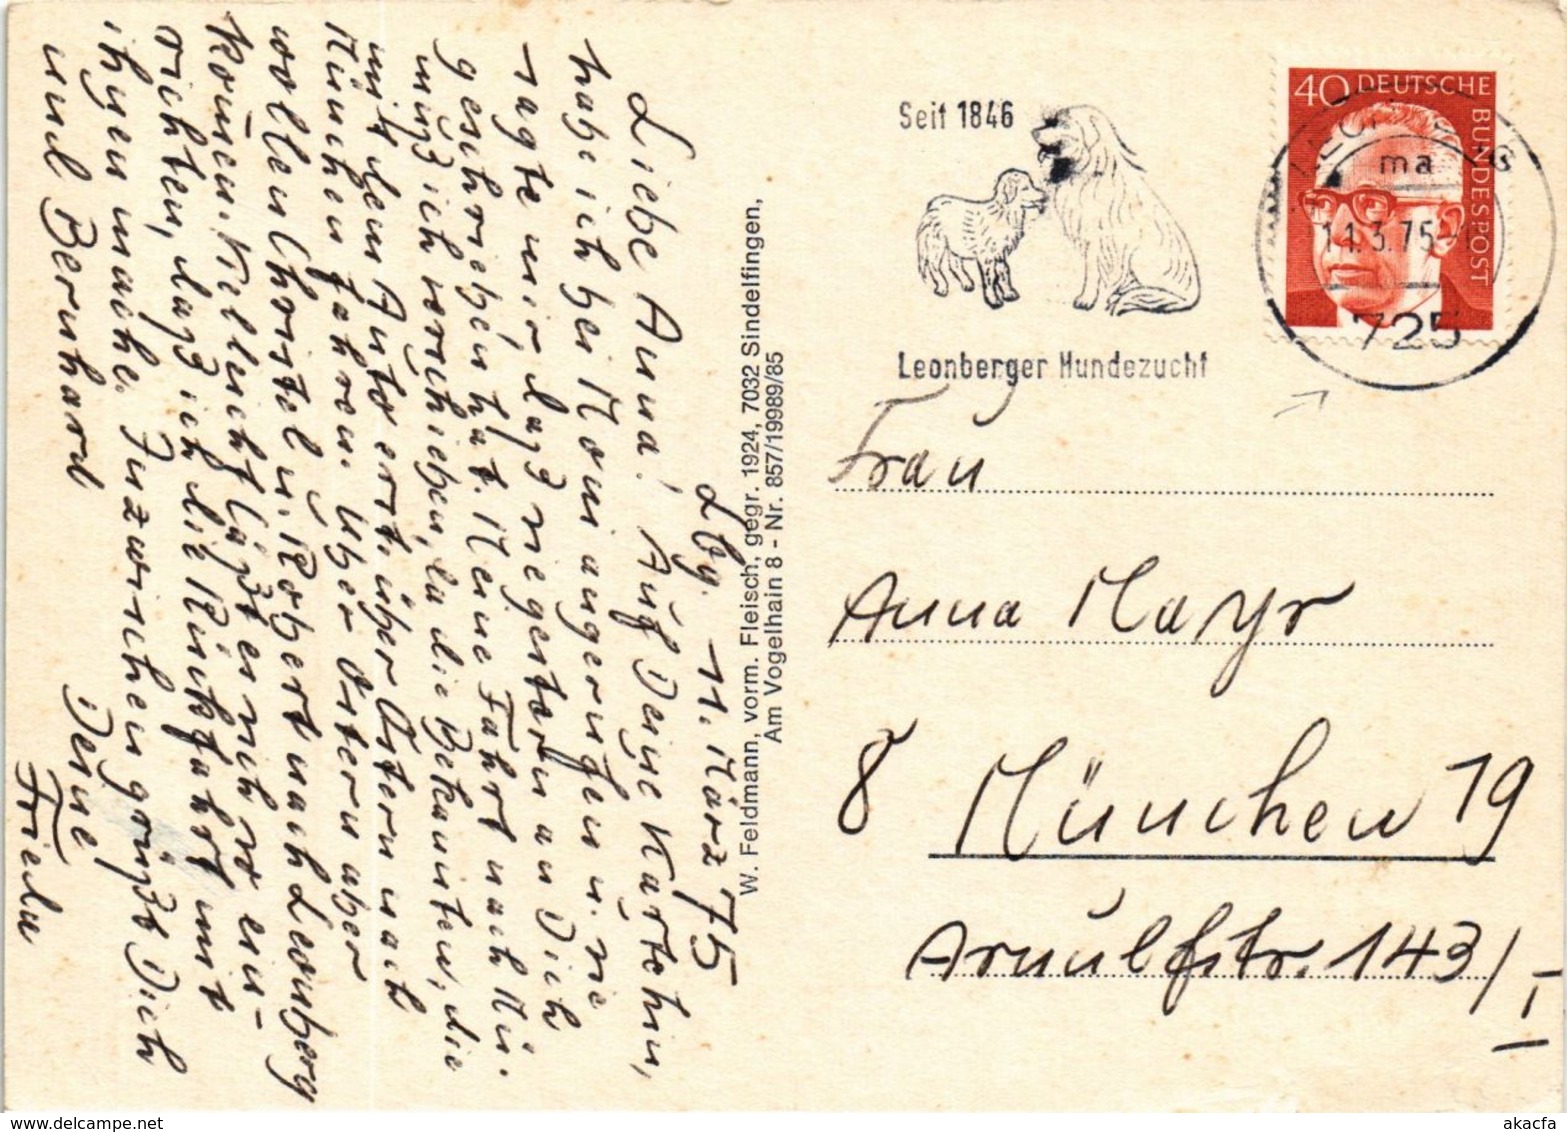 Lbg. 11. März 75
Liebe Anna! Auf Deine Kärtchin,
habe ich bei Moni angerufen u. sie
sagte mir, daß sie gestern an Dich
geschrieben hat. Meine Fahrt nach Mü.
muß ich verschieben, da die Bekannten, die
mit dem Auto erst über Ostern nach
München fahren. Über Ostern aber
wollen Christel u. Robert nach Leonberg
kommen. Vielleicht läßt es sich so ein-
richten, daß ich die Rückfahrt mit
ihnen mache. Inzwischen grüßt Dich
und Bernhard Deine
Frieda
W. Feldmann, vorm. Fleisch, gegr. 1924, 7032 Sindelfingen,
Am Vogelhain 8 - Nr. 857/19989/85
Seit 1846
Leonberger Hundezucht
40 DEUTSCHE
BUNDESPOST
ma
11.3.75
725
Frau
Anna Mayr
8 München 19
Arnulfstr. 143/I
akacfa
www.delcampe.net